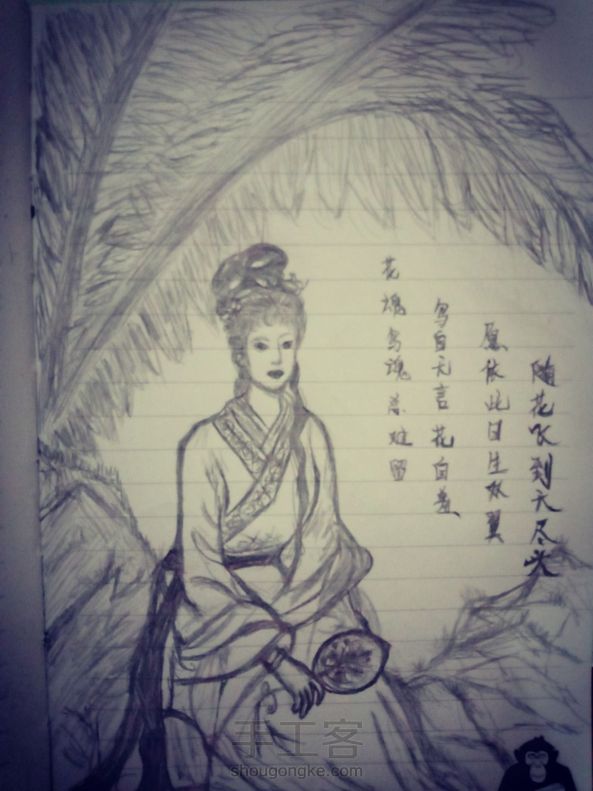 花魂鸟魂总难留
鸟自无言花自羞
愿依此日生双翼
随花飞到天尽头
手工客
shougongke.com